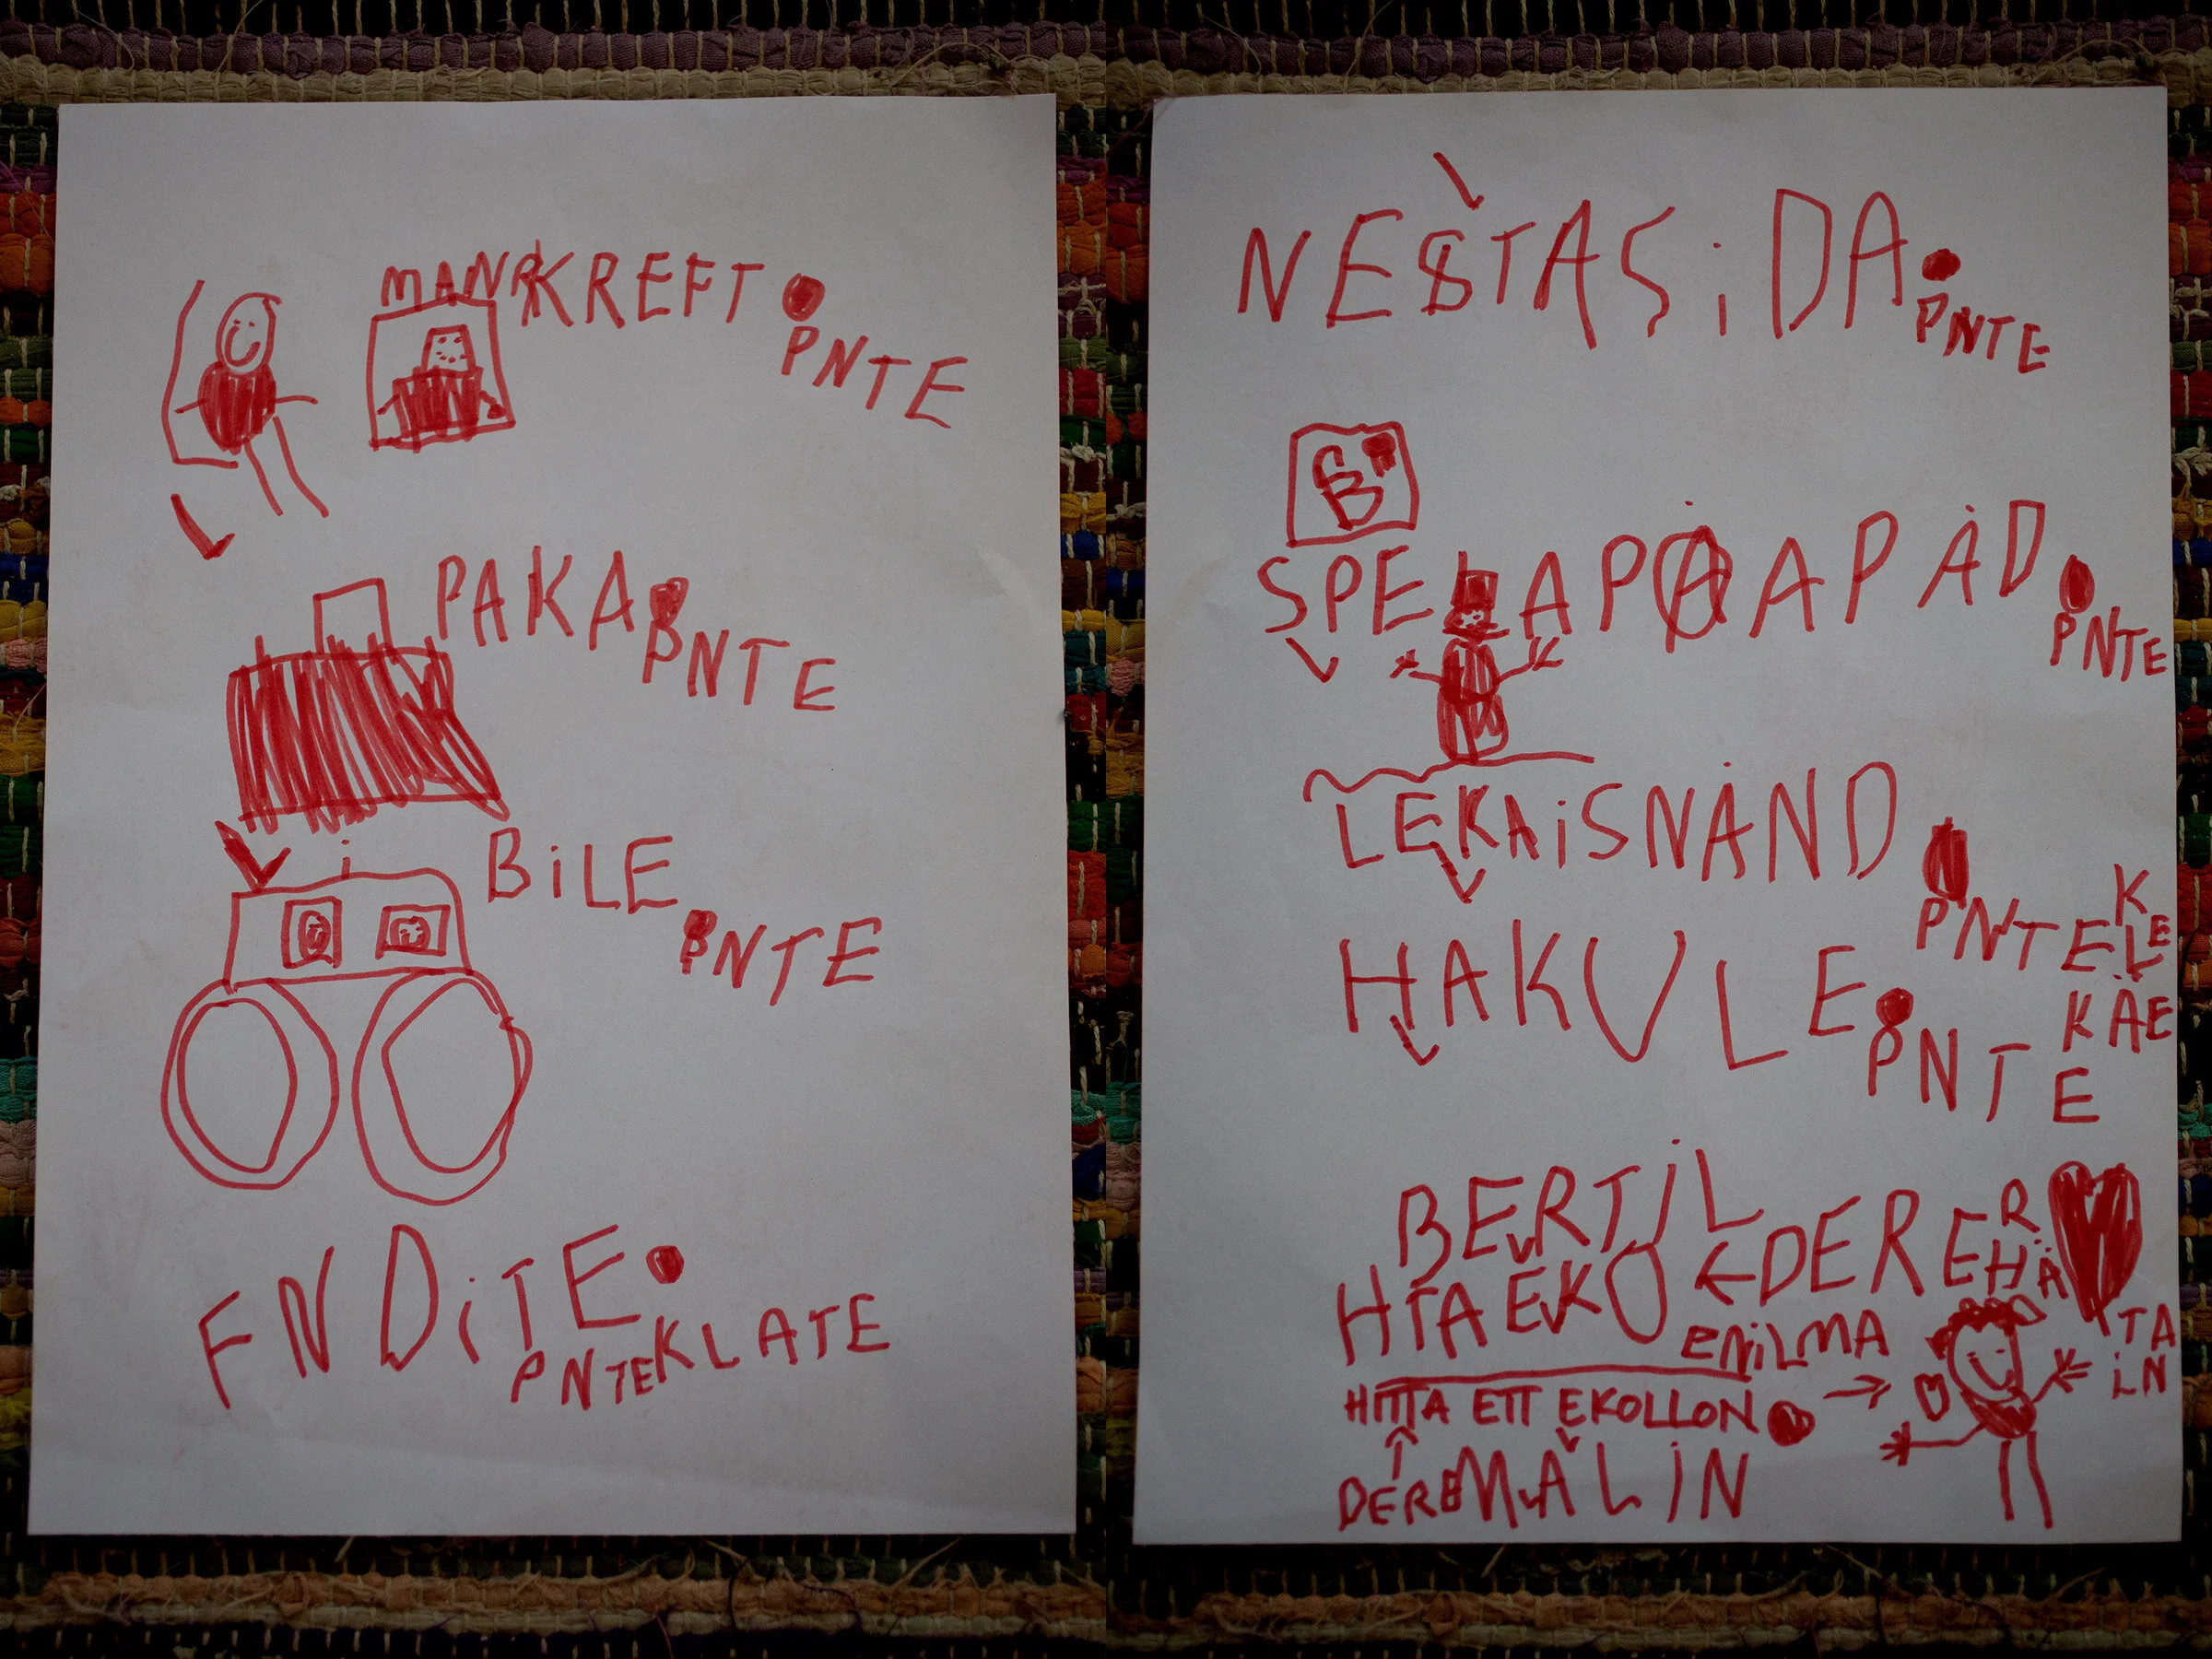 MANKREFT
PNTE
PAKA
PNTE
i
BiLE
PNTE
FNDiTE
PNTEKLATE
NESTASiDA
PNTE
SPELAPÅAPÅD
PNTE
LEKAiSNÅND
PNTE
HAKULE
PNTE
BERTiL
DERER
HTA EKO
eNiLMA
HITTA ETT EKOLLON
DERE
MALiN